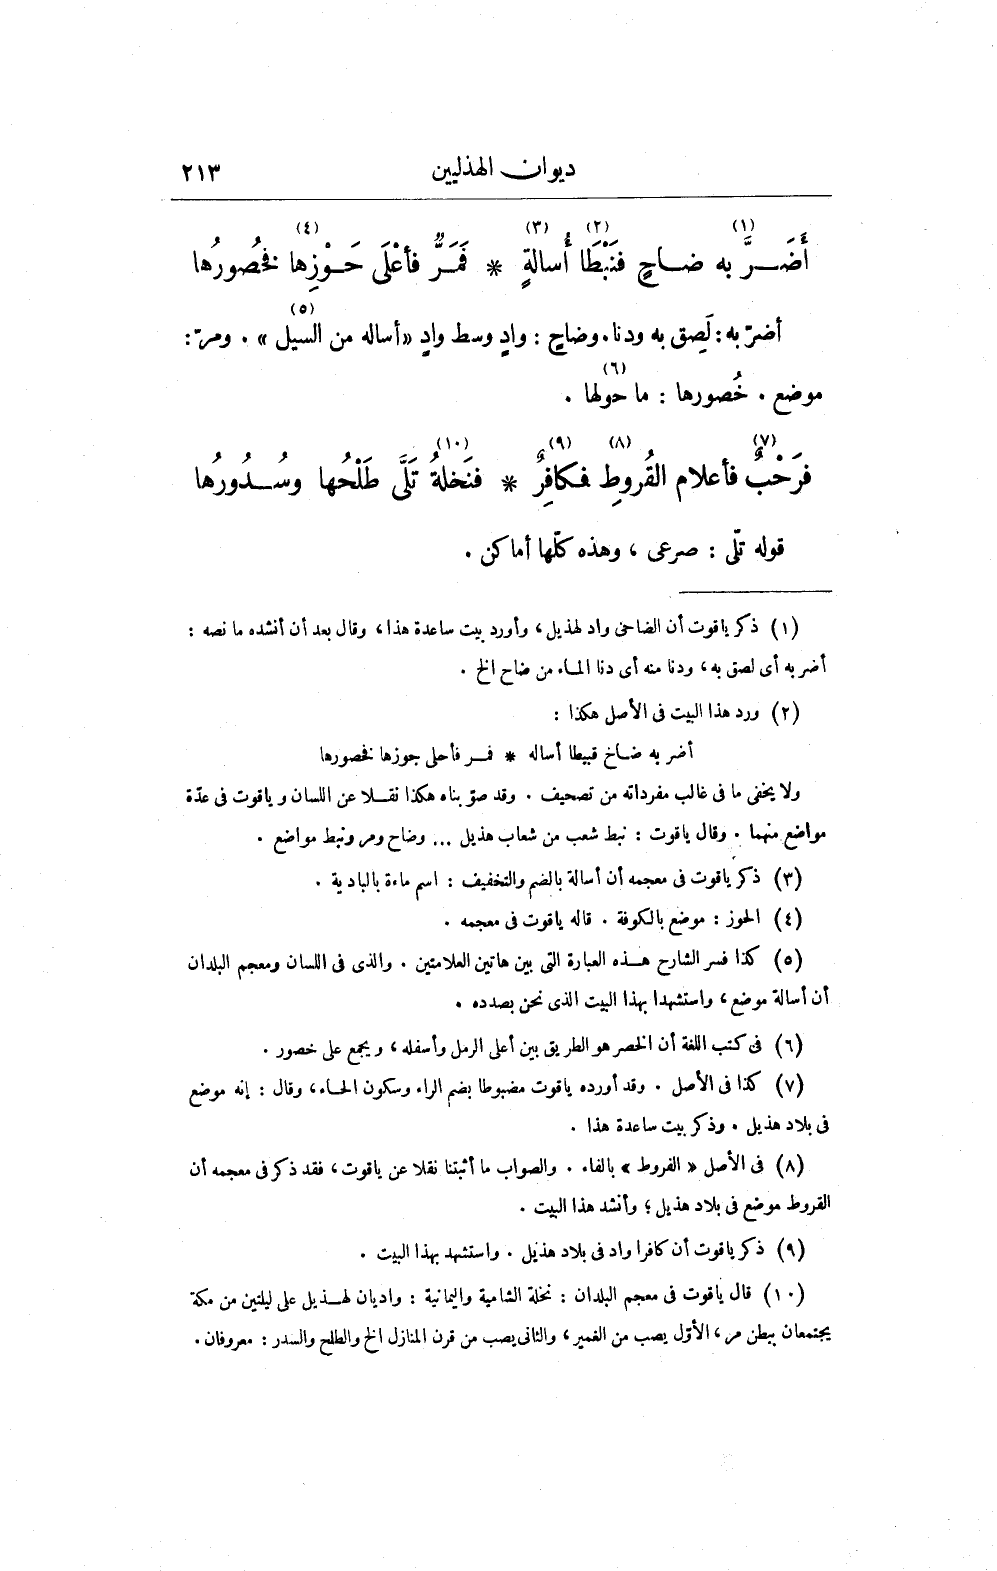 ديوان الهذليين ٢١٣
(١) (٢) (٣) (٤)
أَضَـــرَّ به ضــاحٍ فنَبْطَا أُسالةٍ * فَمَرٌّ فأعْلَى حَــوْزِها فخُصورُها
(٥)
أضرّ به: لَصِق به ودنا. وضاحٍ: وادٍ وسط وادٍ «أساله من السيل». ومرّ:
(٦)
موضع. خُصورها: ما حولها.
(٧) (٨) (٩) (١٠)
فرَحْبٌ فأعلام القُروطِ فكافِرٌ * فنَخلةُ تَلَّى طَلْحُها وسُــدُورُها
قوله تلّى: صرعى، وهذه كلّها أماكن.
(١) ذكر ياقوت أن الضاحى واد لهذيل، وأورد بيت ساعدة هذا، وقال بعد أن أنشده ما نصه:
أضر به أى لصق به، ودنا منه أى دنا المـاء من ضاح الخ.
(٢) ورد هذا البيت فى الأصل هكذا:
أضر به ضـاخ قبيطا أساله * فمــر فأحلى جوزها فخصورها
ولا يخفى ما فى غالب مفرداته من تصحيف. وقد صوّبناه هكذا نقــلا عن اللسان و ياقوت فى عدّة
مواضع منهما. وقال ياقوت: نبط شعب من شعاب هذيل ... وضاح ومر ونبط مواضع.
(٣) ذكر ياقوت فى معجمه أن أسالة بالضم والتخفيف: اسم ماءة بالبادية.
(٤) الحوز: موضع بالكوفة. قاله ياقوت فى معجمه.
(٥) كذا فسر الشارح هــذه العبارة التى بين هاتين العلامتين. والذى فى اللسان ومعجم البلدان
أن أسالة موضع، واستشهدا بهذا البيت الذى نحن بصدده.
(٦) فى كتب اللغة أن الخصر هو الطريق بين أعلى الرمل وأسفله، ويجمع على خصور.
(٧) كذا فى الأصل. وقد أورده ياقوت مضبوطا بضم الراء وسكون الحـاء، وقال: إنه موضع
فى بلاد هذيل. وذكر بيت ساعدة هذا.
(٨) فى الأصل «الفروط» بالفاء. والصواب ما أثبتنا نقلا عن ياقوت، فقد ذكر فى معجمه أن
القروط موضع فى بلاد هذيل؛ وأنشد هذا البيت.
(٩) ذكر ياقوت أن كافرا واد فى بلاد هذيل. واستشهد بهذا البيت.
(١٠) قال ياقوت فى معجم البلدان: نخلة الشامية واليمانية: واديان لهــذيل على ليلتين من مكة
يجتمعان ببطن مر، الأوّل يصب من الغمير، والثانى يصب من قرن المنازل الخ والطلح والسدر: معروفان.